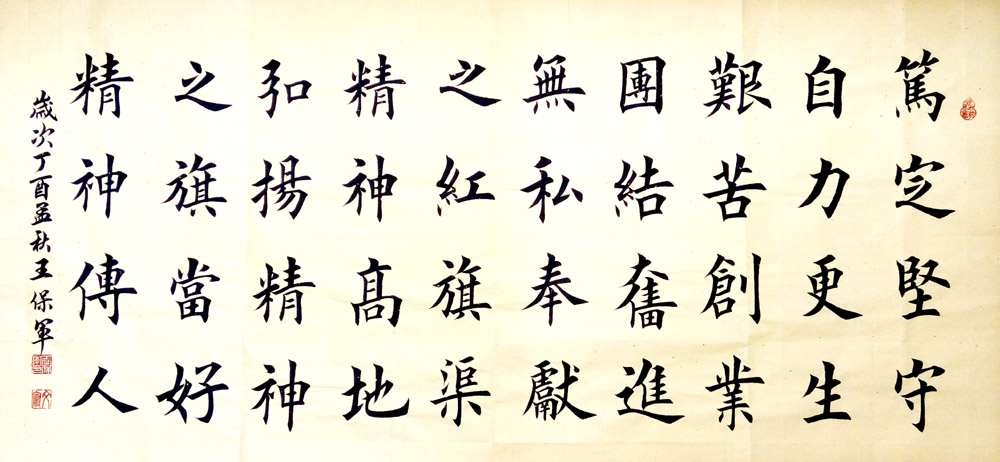 篤定堅守
自力更生
艱苦創業
團結奮進
無私奉獻
之紅旗渠
精神髙地
弘揚精神
之旗當好
精神傳人
歲次丁酉孟秋王保軍